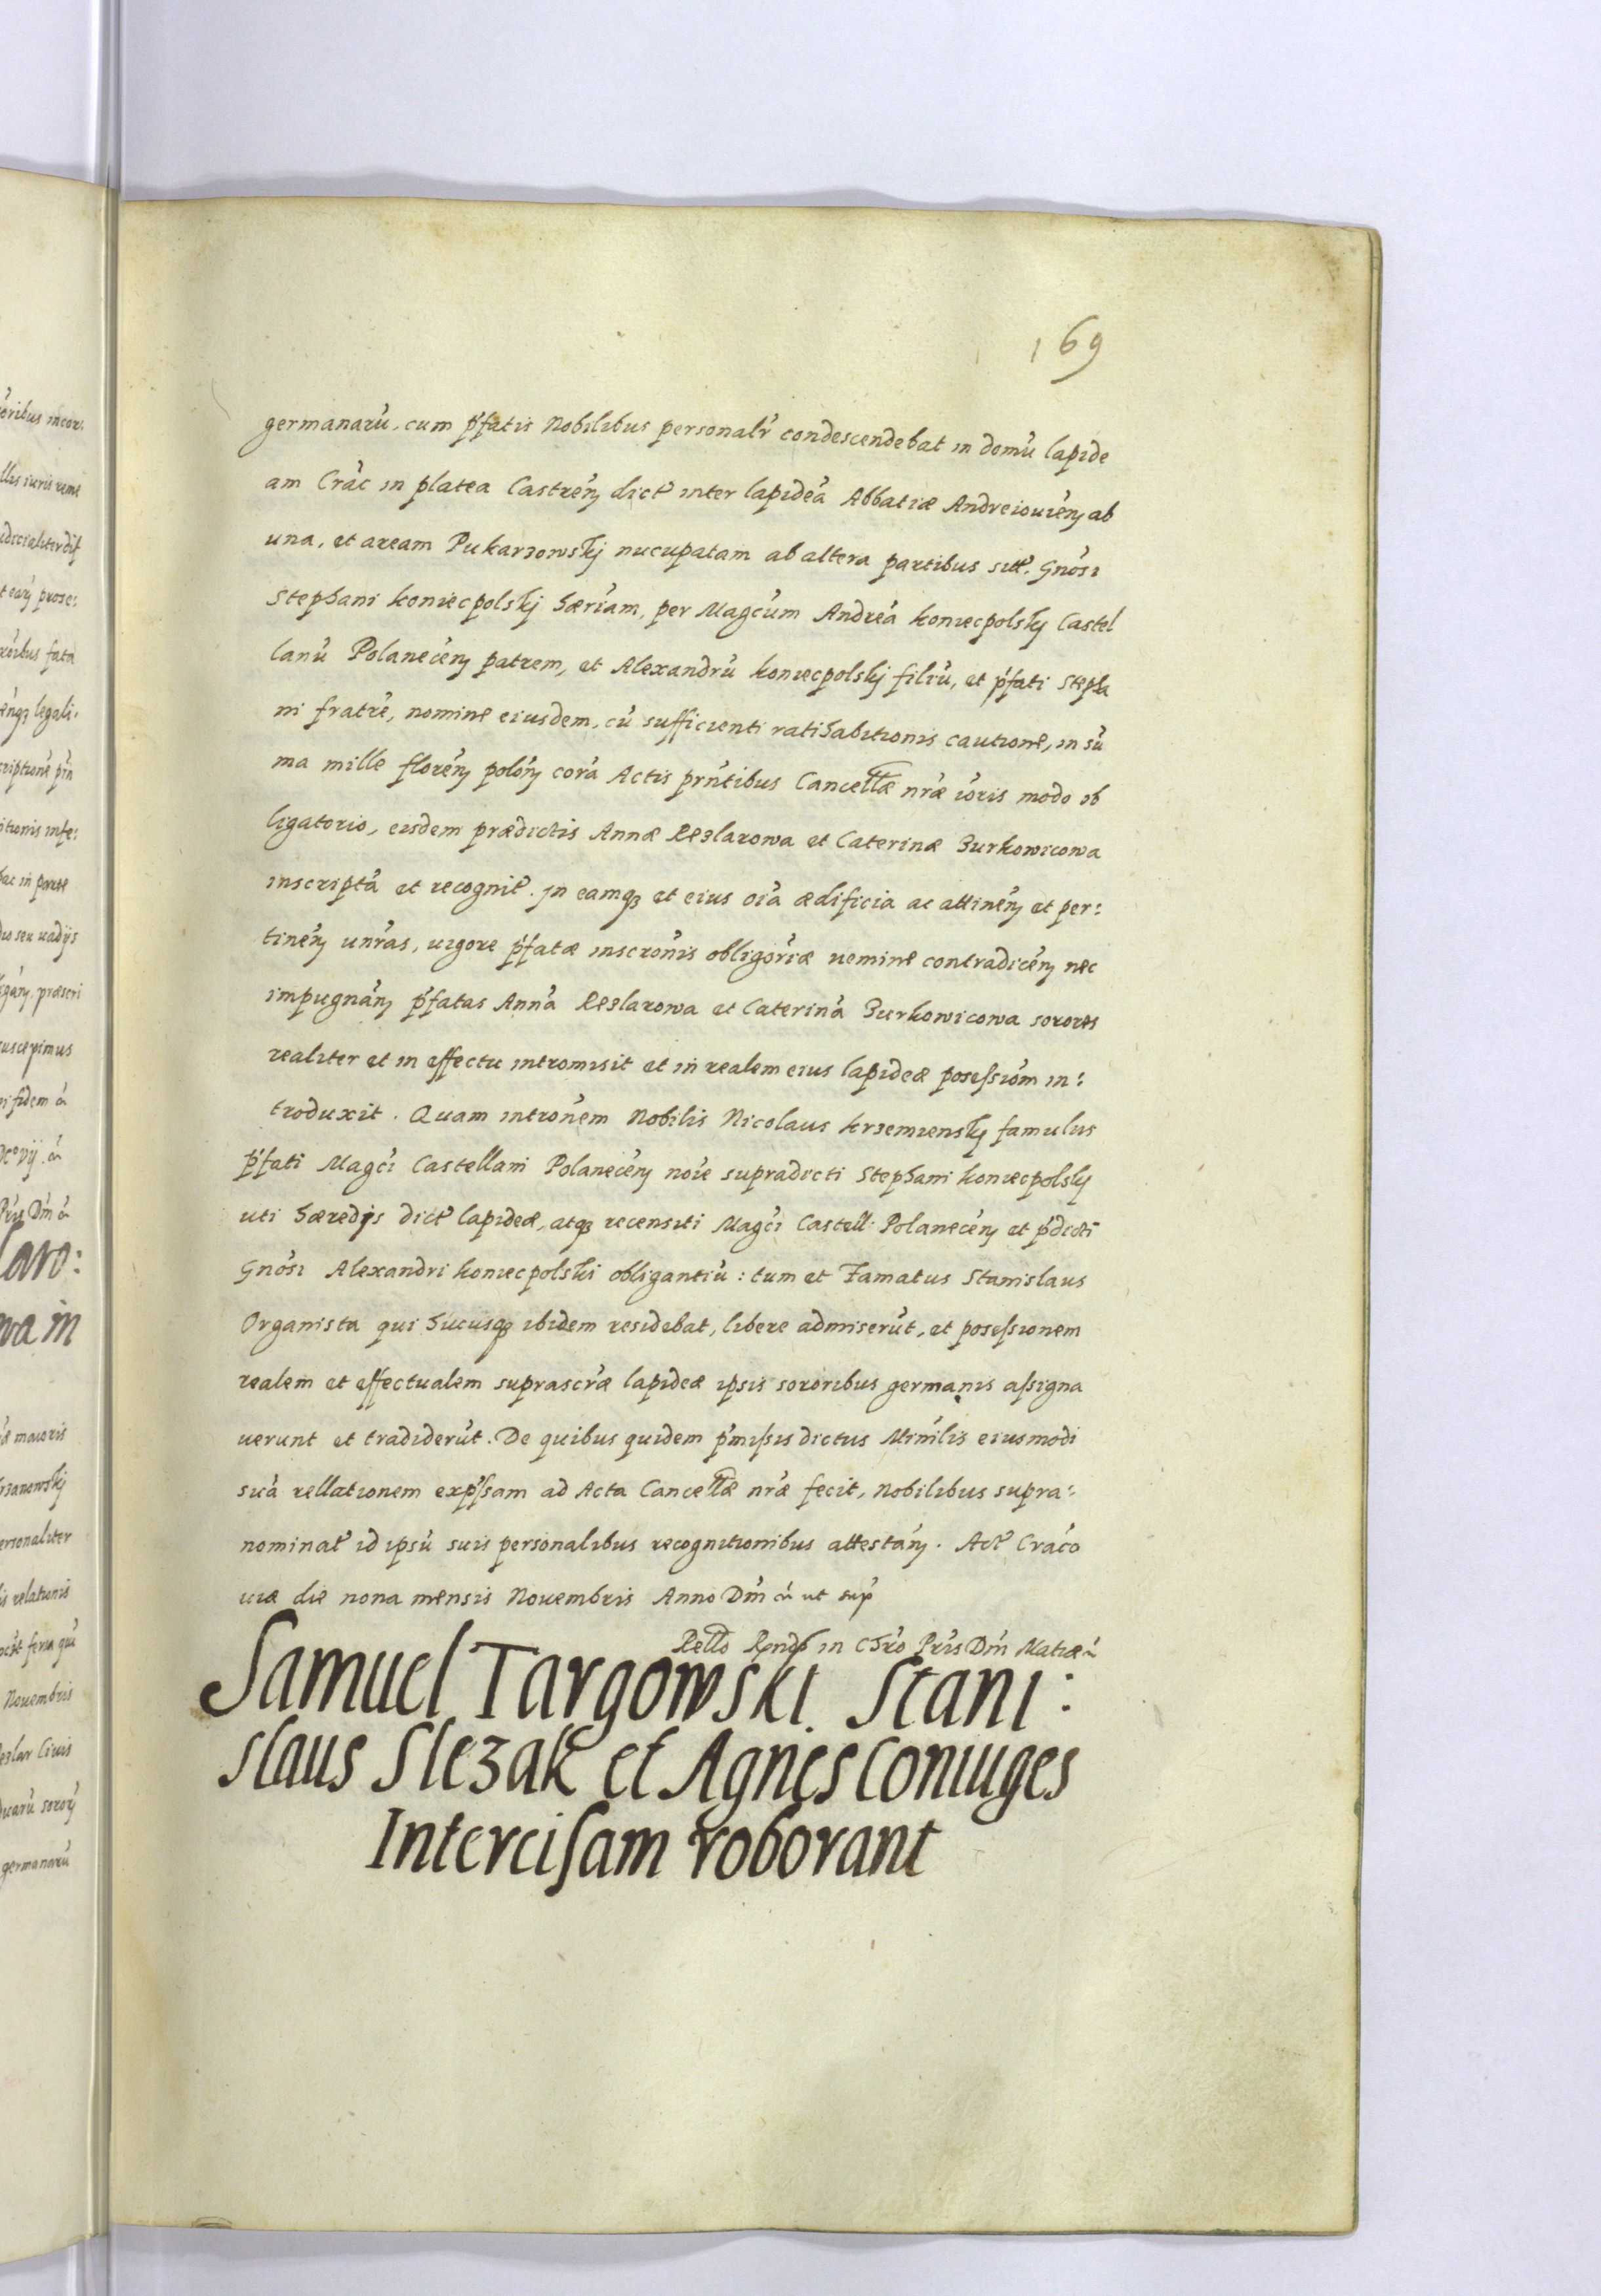 169
germanarũ, cum p̃fatis Nobilibus personalr̃ condescendebat in domũ lapide
am Crac̃ in platea Castreñ dict̃ inter lapideã Abbatiæ Andreiouieñ ab
una, et aream Pukarzowskj nucupatam ab altera partibus sitt̃. Gnõsi
Stephani koniecpolskj hæriam, per Magcũm Andreã koniecpolskj Castel
lanũ Polaneceñ patrem, et Alexandrũ koniecpolskj filiũ, et p̃fati Stepha
ni fratrẽ, nomine eiusdem, cũ sufficienti ratihabitionis cautione, in sũ
ma mille floreñ poloñ corã Actis prñtibus Cancellæ nræ ioris modo ob
ligatorio, eisdem prædictis Annæ Rezlarowa et Caterinæ Burkowicowa
inscriptã et recognit̃. In eamq3 et eius oĩa ædificia ac attineñ et per:
tineñ unr̃as, uigore p̃fatæ inscrõnis obligor̃iæ nemine contradiceñ nec
impugnañ p̃fatas Annã Rezlarowa et Caterinã Burkowicowa sorores
realiter et in effectu intromisit et in realem eius lapideæ posessiõm in:
troduxit. Quam intronẽm Nobilis Nicolaus krzemienskj famulus
p̃fati Magcĩ Castellani Polaneceñ noĩe supradicti Stephani koniecpolskj
uti hæredis dict̃ lapideæ, atq3 recensiti Magcĩ Castell. Polaneceñ et p̃dicti
Gnõsi Alexandri koniecpolski obligantiũ: tum et Famatus Stanislaus
Organista qui hucusq3 ibidem residebat, libere admiserũt, et posessionem
realem et effectualem suprascr̃æ lapideæ ipsis sororibus germanis assigna
uerunt et tradiderũt. De quibus quidem p̃missis dictus Minĩlis eiusmodi
suã rellationem exp̃ssam ad Acta Cancellæ nræ fecit, Nobilibus supra:
nominat̃ id ipsũ suis personalibus recognitionibus attestañ. Act̃ Craco
uiæ die nona mensis Nouembris Anno Dñi ã ut sup̃
Samuel Targowski. Stani:
slaus Slezak et Agnes Coniuges
Intercisam roborant